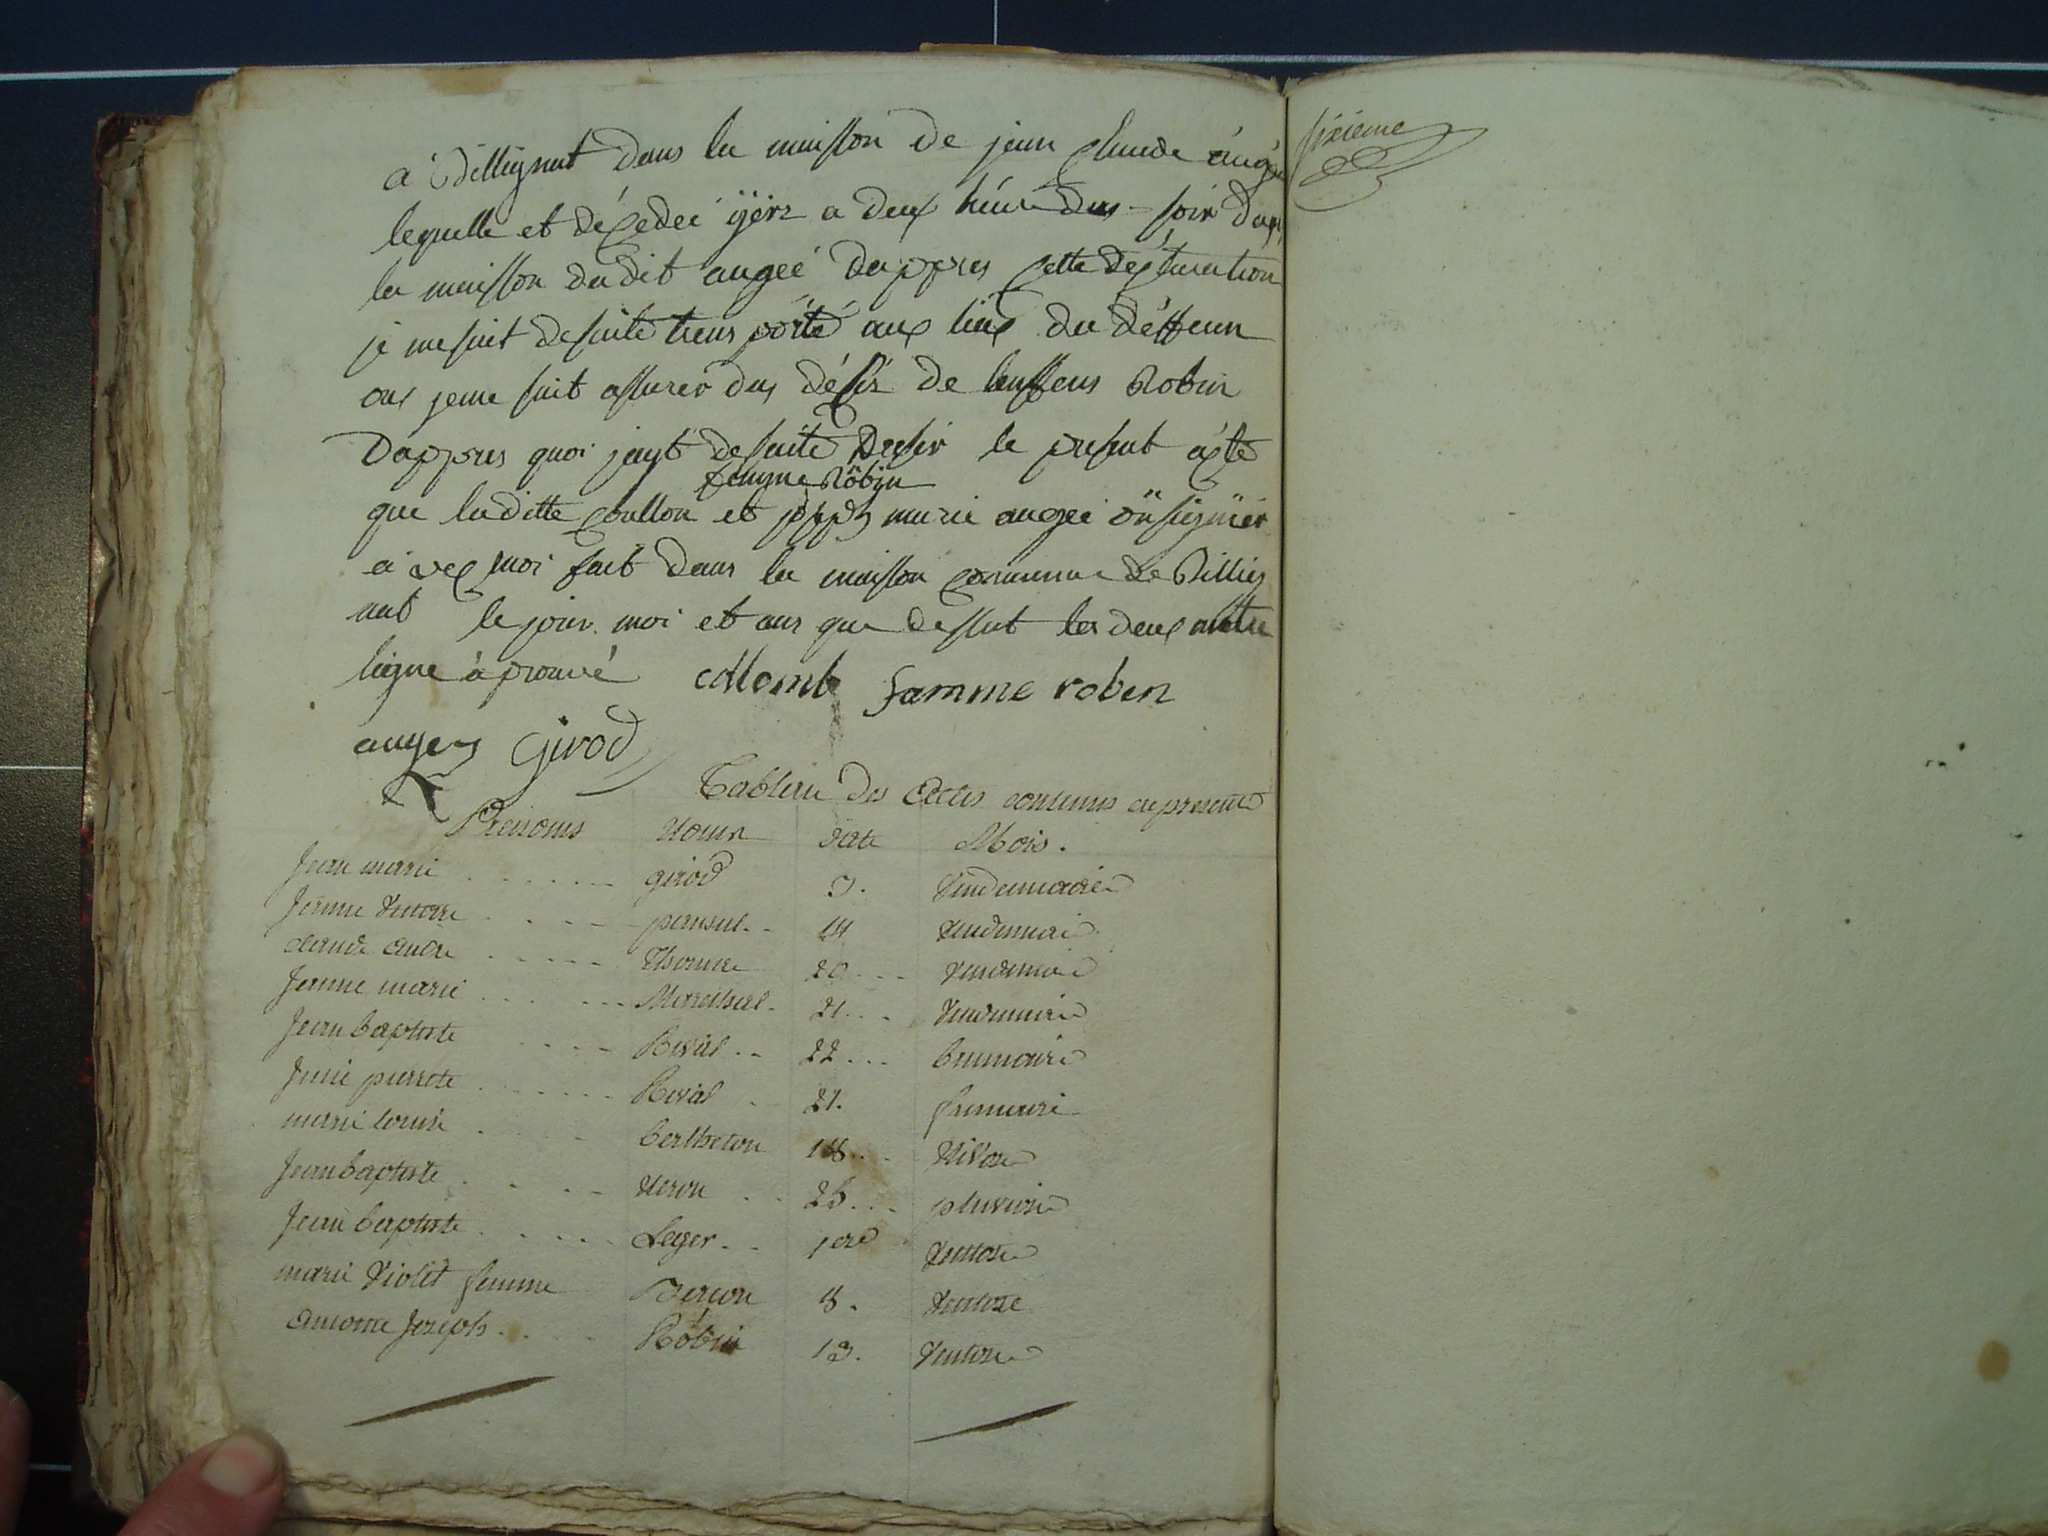 a Villignat dans la maisson de jean Claude augé
lequelle et déçedeé yërz a deux heure dus soir dans
la maisson du dit augeé dappres cette déclaration
je me suit desuite trensporté aux lieux du déffeun
ous je me suit assurer dus désiz de lenffens Robin
Dappres quoi jayt desuite Dresér le present acte
femme Robin
que laditte Coullon et marie augeé on signier
avec moi fait dans la maisson commune de Villig
nat le jour moi et ans que dessut les deux mètre
ligne aprouvé collomb famme robin
augey Girod
Tableau Des Décès contenus au present
Prenoms Noms date Mois.
Jean marie girod 3. Vendemiaire
Jeanne Victoire pansut 14 Vendemiaire
claude andre Thomas 20 Vendemiaire
Jeanne marie Marechal 21 Vendemiaire
Jean baptiste Rival 22 brumaire
Jeane pierrete Rival 21. frimaire
marie louise berthelon 18 Nivose
Jean baptiste Neron 26 pluviose
Jean baptiste Leger 1ere Ventose
marie Violet femme Bercon 8. Ventose
antoine Joseph Robin 13. Ventose
sixieme